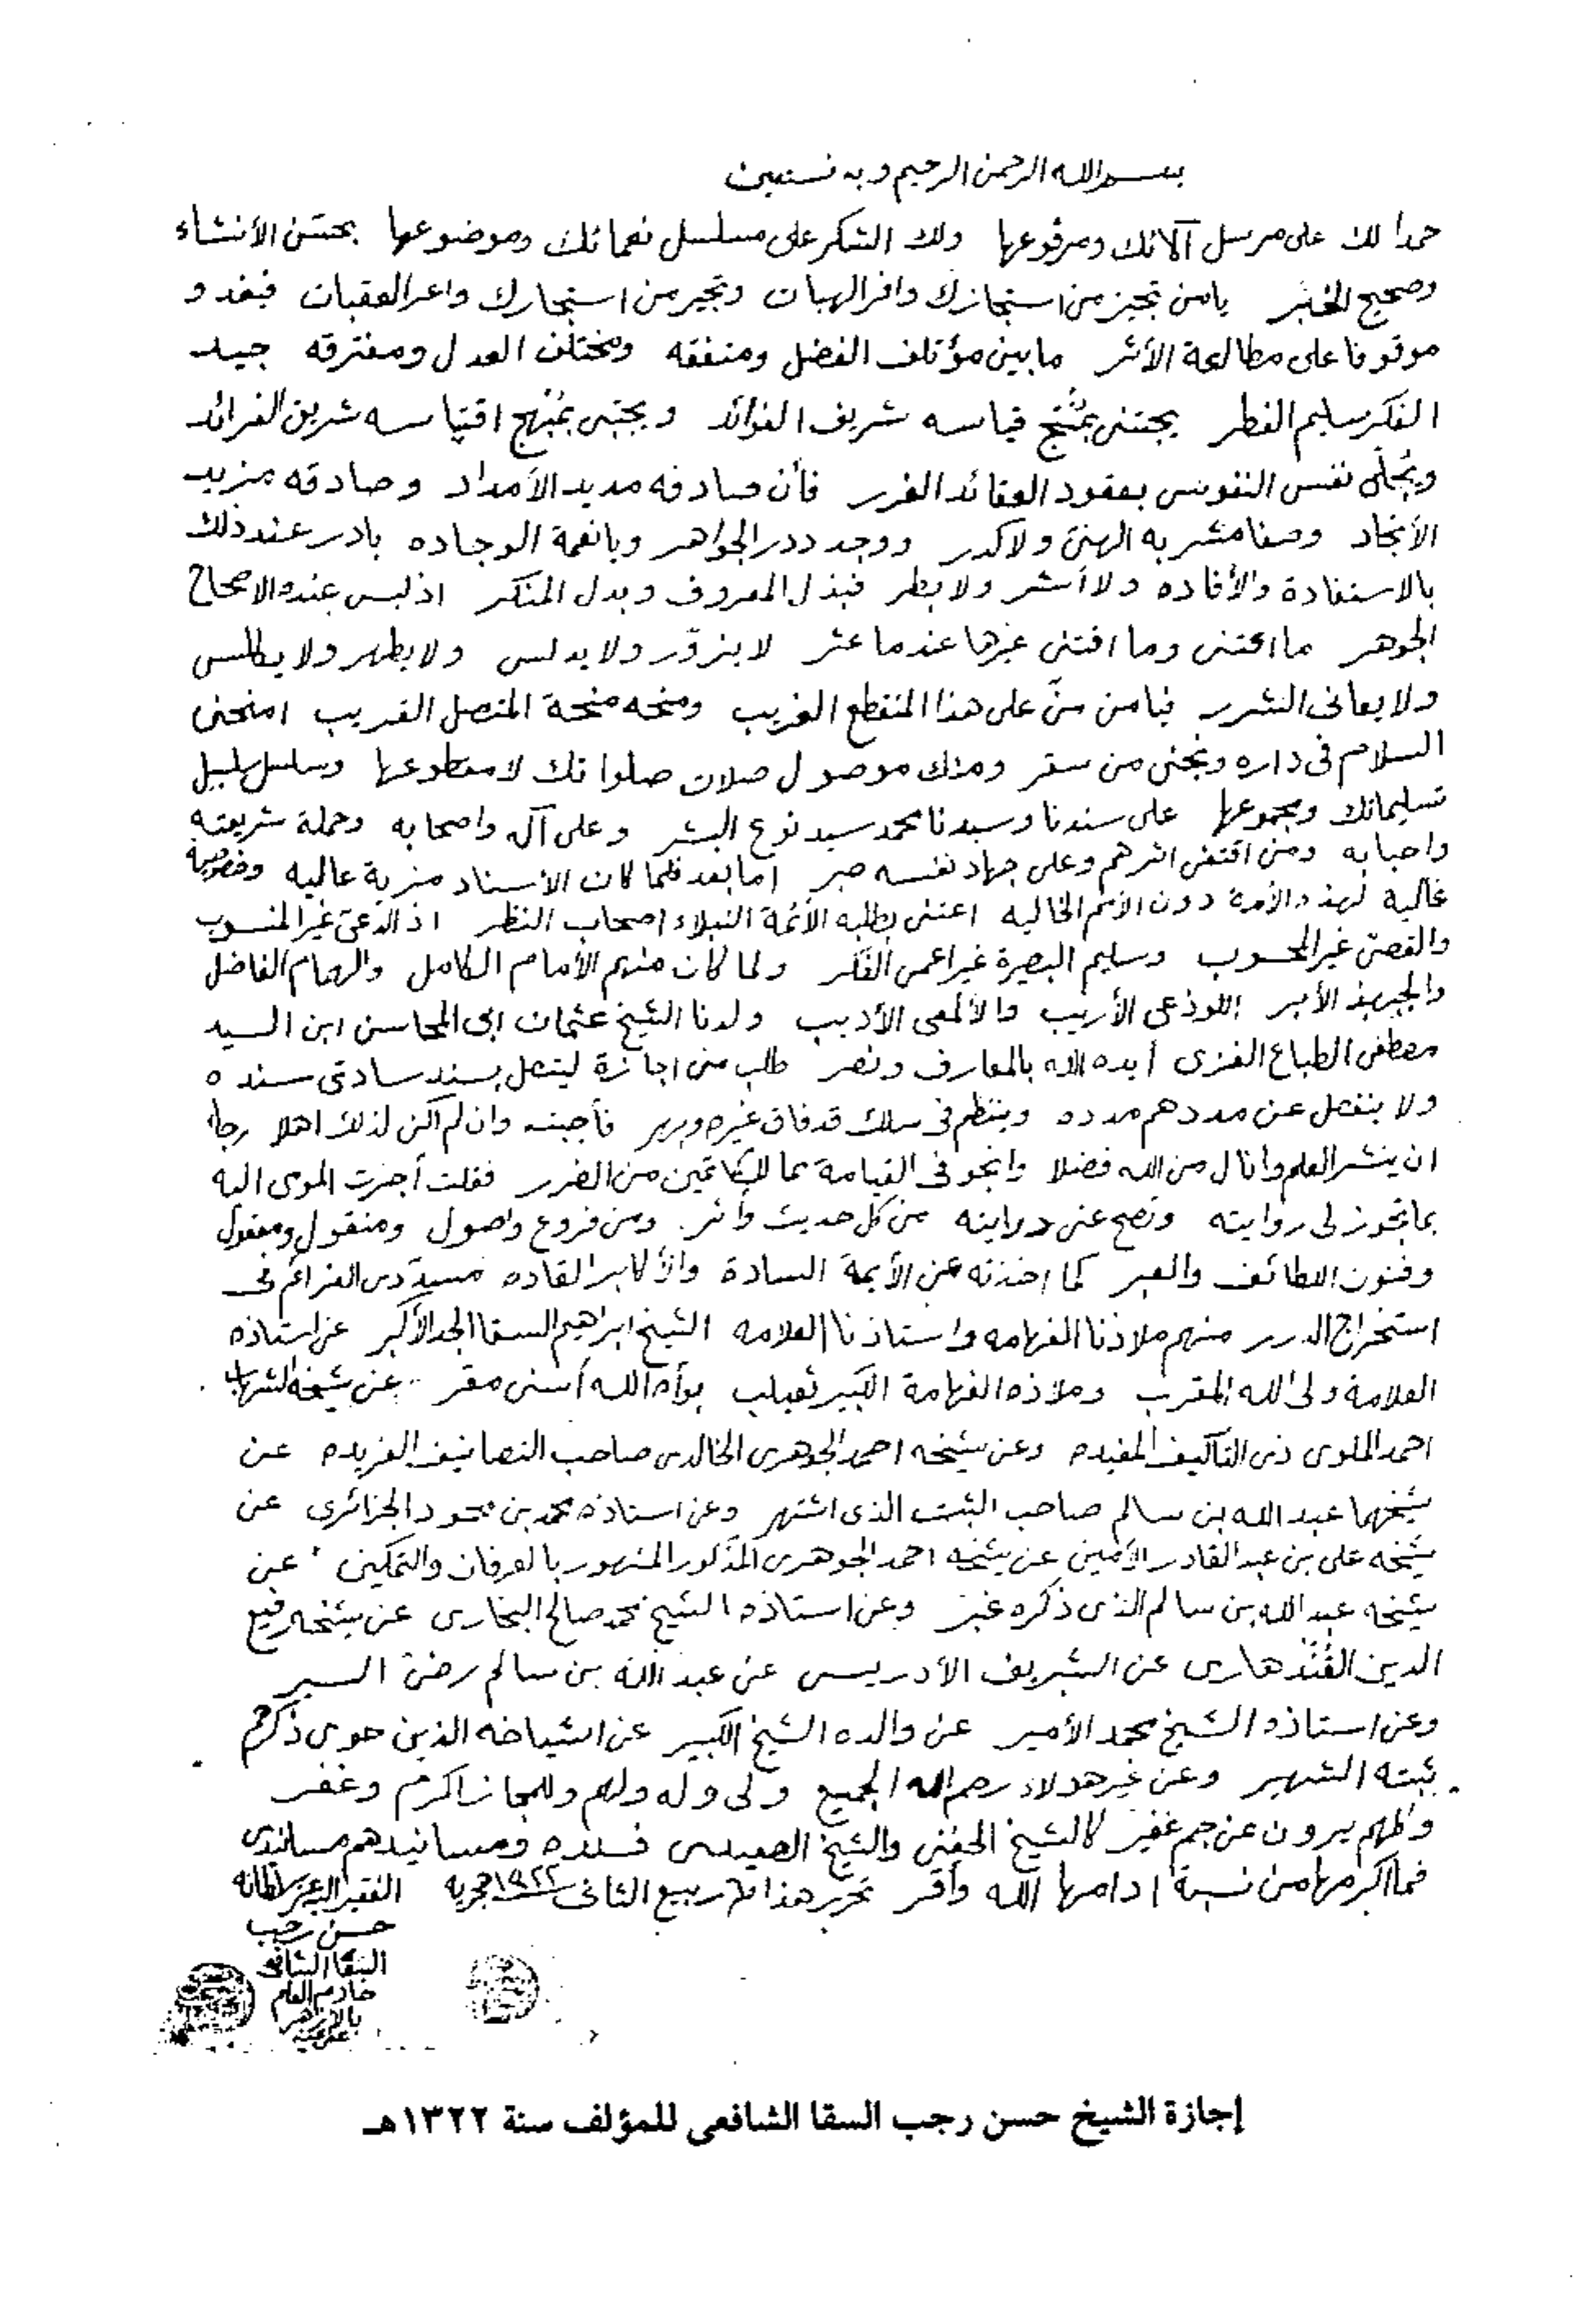 بسم الله الرحمن الرحيم وبه نستعين
حمدا لك على مرسل آلائك ومرفوعها ولك الشكر على مسلسل نعمائك وموضوعها بحسن الأنشاء
وصحيح الخبر يامن تجيز من استجازك وافر الهبات وتجير من استجارك واعر العقبات فيغدو
موقوفا على مطالعة الأثر مابين مؤتلف الفضل ومتفقه ومختلف العدل ومفترقه جيد
الفكر سليم الفطر يجتنى بمنتج قياسه شريف الفوائد ويجتبى بمنهج اقتباسه شريف الفرائد
ويحلى نفس النفوس بعقود العقائد الغرر فأن صادفه مديد الأمداد وصادقه مزيد
الأنجاد وصفا مشربه الهنى ولا كدر ووجد درر الجواهر ويانعة الوجاده بادر عند ذلك
بالاستفادة والأفاده ولا أشر ولا بطر فبذل المعروف وبدل المنكر اذ ليس عنده الاصحاح
الجوهر ما اقتنى وما اقتنى غيرها عندما عثر لا يزور ولا يدلس ولا يطهر ولا يطلس
ولا يعانى الشرر فيامن من على هذا المنقطع الغريب ومنحه منحة المتصل القريب امنحنى
السلام فى داره ونجنى من سقر ومنك موصول صلات صلواتك لا مقطوعها وسلسل سلسبيل
تسليماتك ومجموعها على سندنا وسيدنا محمد سيد نوع البشر وعلى آله واصحابه وحملة شريعته
واحبابه ومن اقتفى اثرهم وعلى جهاد نفسه صبر اما بعد فلما كان الأسناد مزية عاليه وخصوصية
غالية لهذه الأمة دون الأمم الخاليه اعتنى بطلبه الأئمة النبلاء اصحاب النظر اذ الدعى غير المنسوب
والقصى غير المحسوب وسليم البصيرة غير اعمى الفكر ولما كان منهم الأمام الكامل والهمام الفاضل
والجهبذ الأبر اللوذعى الأريب والألمعى الأديب ولدنا الشيخ عثمان ابى المحاسن ابن السيد
مصطفى الطباع الغزى أيده الله بالمعارف ونصر طلب منى اجازة ليتصل بسند سادتى سنده
ولا ينفصل عن مددهم مدده وينتظم فى سلك قد فاق غيره وبهر فأجبته وان لم اكن لذلك اهلا رجاء
ان ينشر العلم وانال من الله فضلا وانجو فى القيامة مما للكاتمين من الضرر فقلت أجزت المومى اليه
بما تجوز لى روايته وتصح عنى درايته من كل حديث وأثر ومن فروع واصول ومنقول ومعقول
وفنون اللطائف والعبر كما اخذته عن الأيمة السادة والأكابر القاده مسددى العزائم فى
استخراج الدرر منهم ملاذنا الفهامه واستاذنا العلامه الشيخ ابراهيم السقا الجد الأكبر عن استاذه
العلامة ولى الله المقرب وملاذه الفهامة الكبير ثعيلب بوأه الله أسنى مقر عن شيخه الشهاب
احمد الملوى ذى التآليف المفيده وعن شيخه احمد الجوهرى الخالدى صاحب التصانيف الفريده عن
شيخهما عبد الله بن سالم صاحب الثبت الذى اشتهر وعن استاذه محمد بن محمود الجزائرى عن
شيخه على بن عبد القادر الأمين عن شيخه احمد الجوهرى المذكور المشهور بالعرفان والتمكين عن
شيخه عبد الله بن سالم الذى ذكره غبر وعن استاذه الشيخ محمد صالح البخارى عن شيخه رفيع
الدين القندهارى عن الشريف الأدريسى عن عبد الله بن سالم رضى السير
وعن استاذه الشيخ محمد الأمير عن والده الشيخ الكبير عن اشياخه الذين حوى ذكرهم
ثبته الشهير وعن غير هولاء رحم الله الجميع ولى وله ولهم وللمجاز اكرم وغفر
وكلهم يروون عن جم غفير كالشيخ الحفنى والشيخ الصعيدى ومسانيدهم مسانيدى
فما اكرمها من نسبة ادامها الله وأقر تحرير هذا ربيع الثانى ١٩٢٢ هجريه الفقير اليه عز سلطانه
حسن رجب
السقا الشافعى
خادم العلم
بالازهر
عفى عنه
إجازة الشيخ حسن رجب السقا الشافعى للمؤلف سنة ١٣٢٢هـ